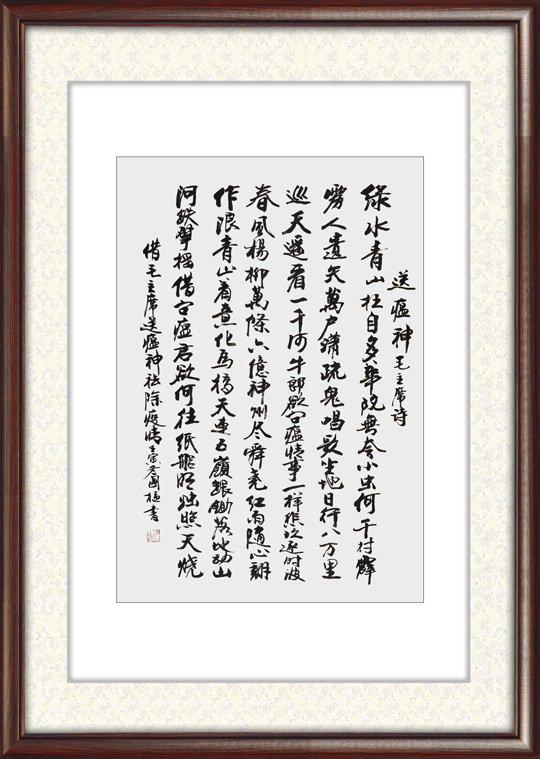 送瘟神毛主席诗
绿水青山枉自多華陀無奈小虫何千村薜
荔人遺矢萬户蕭疏鬼唱歌坐地日行八万里
巡天遥看一千河牛郎欲问瘟情事一样悲欢逐时波
春風楊柳萬條六億神州尽舜尧红雨随心翻
作浪青山着意化为桥天连五嶺銀鋤落地动山
河铁臂摇借问瘟君欲何往纸船明烛照天烧
借毛主席送瘟神祛除疫情 书